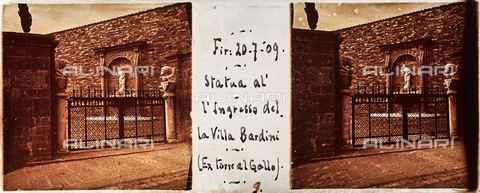 Fir: 20-7-09.
Statua al'
l'Ingresso del
la Villa Bardini
(Ex torre al Gallo).
ALINARI
ALINARI
ALINARI
ALINARI
ALINARI
ALINARI